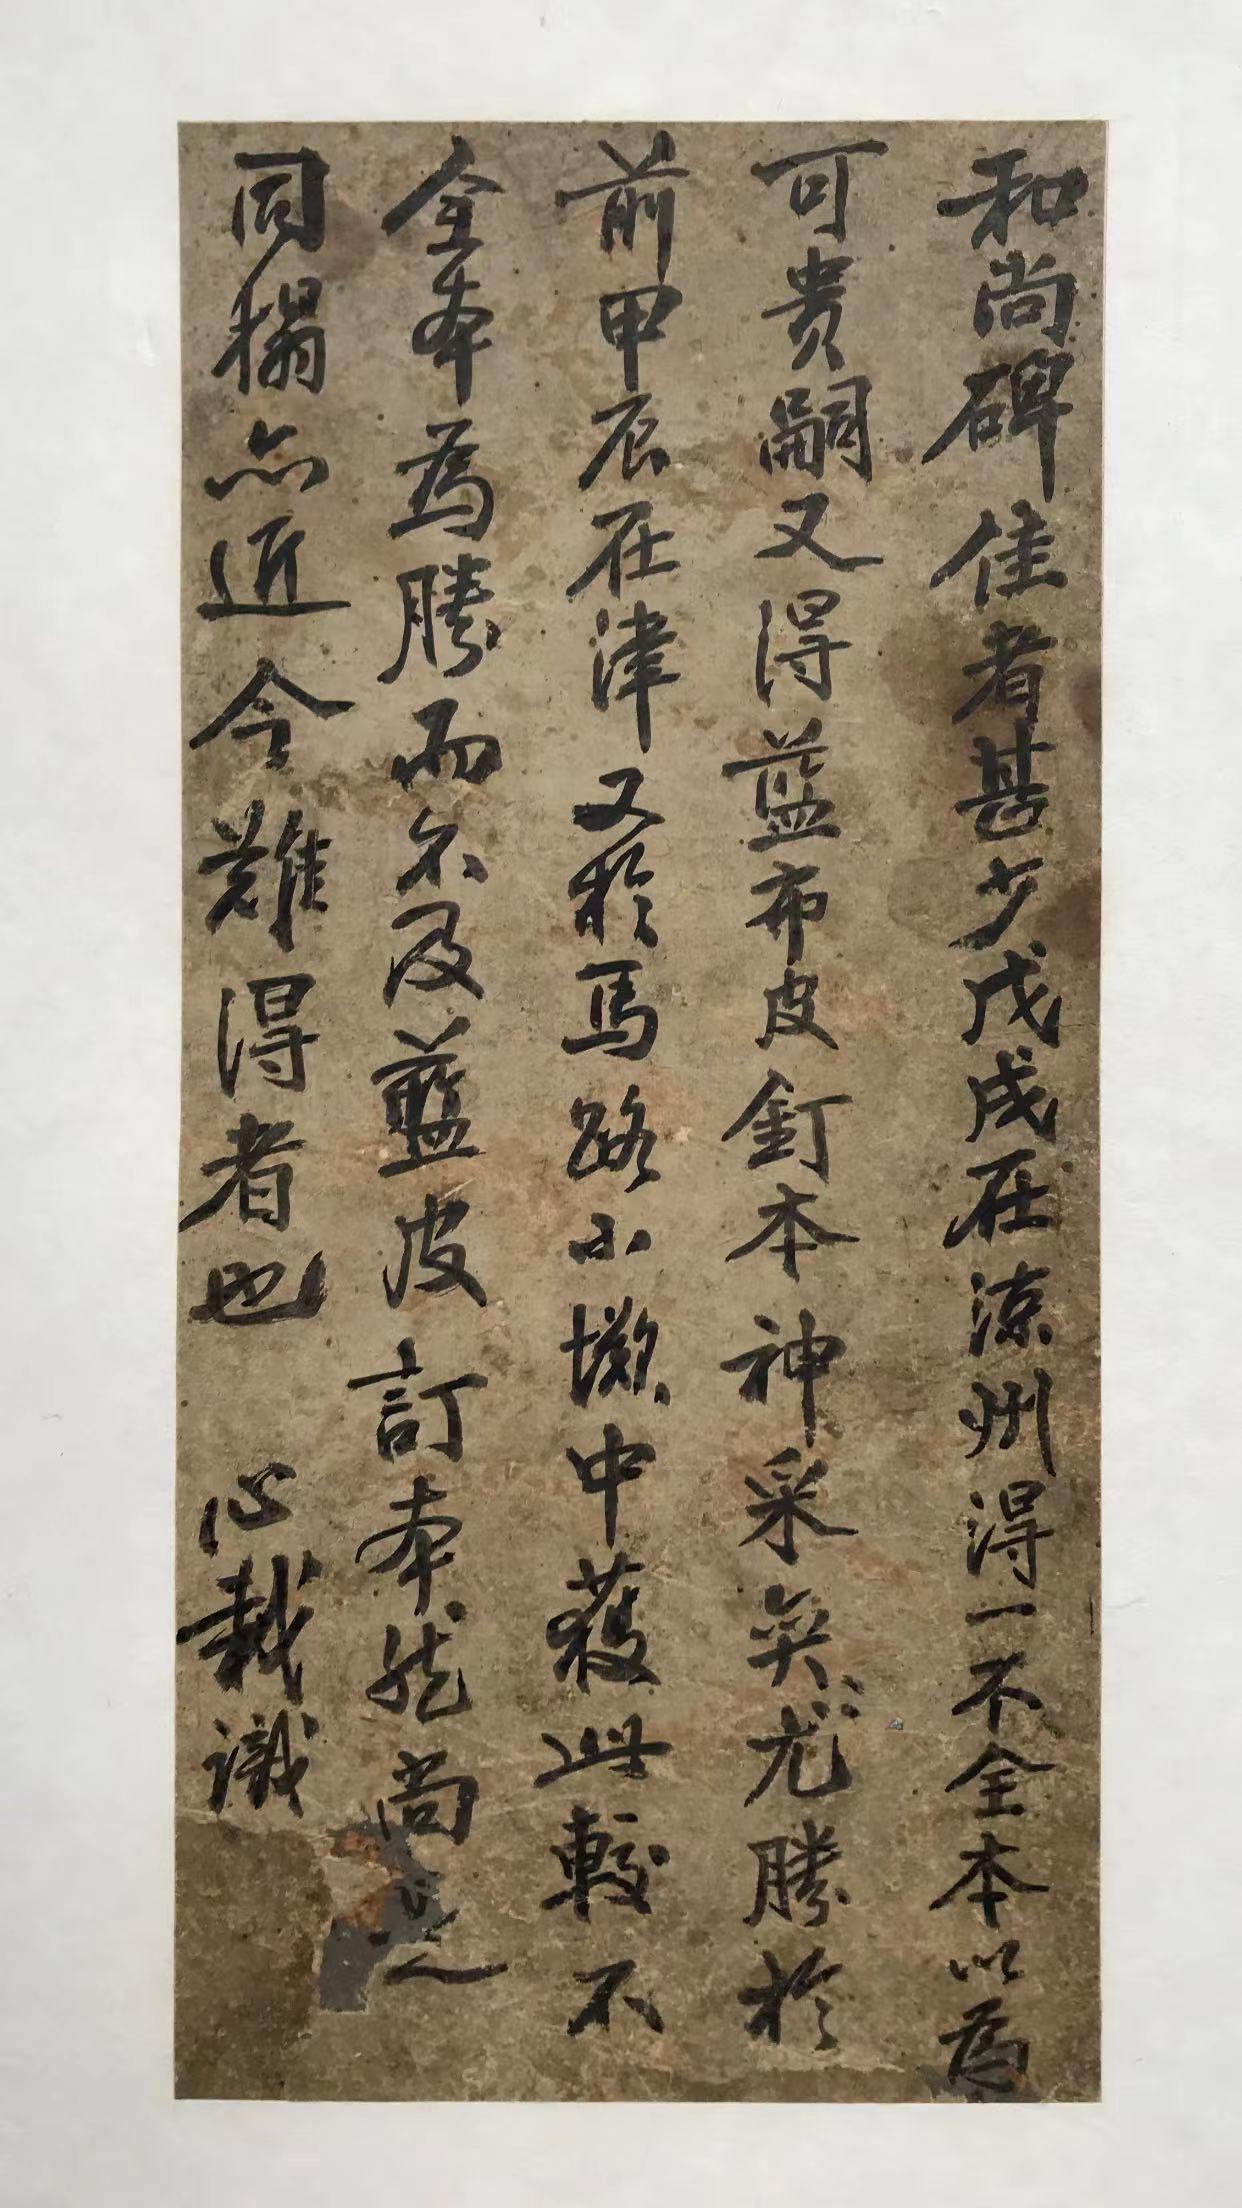 和尚碑佳者甚少戊戌在涼州得一不全本以為
可贵嗣又得藍布皮釘本神采奕〻尤勝於
前甲辰在津又於馬路小攤中获此較不
全本為勝而不及藍皮訂本然尚是
同搨亦近今難得者也 心栽識